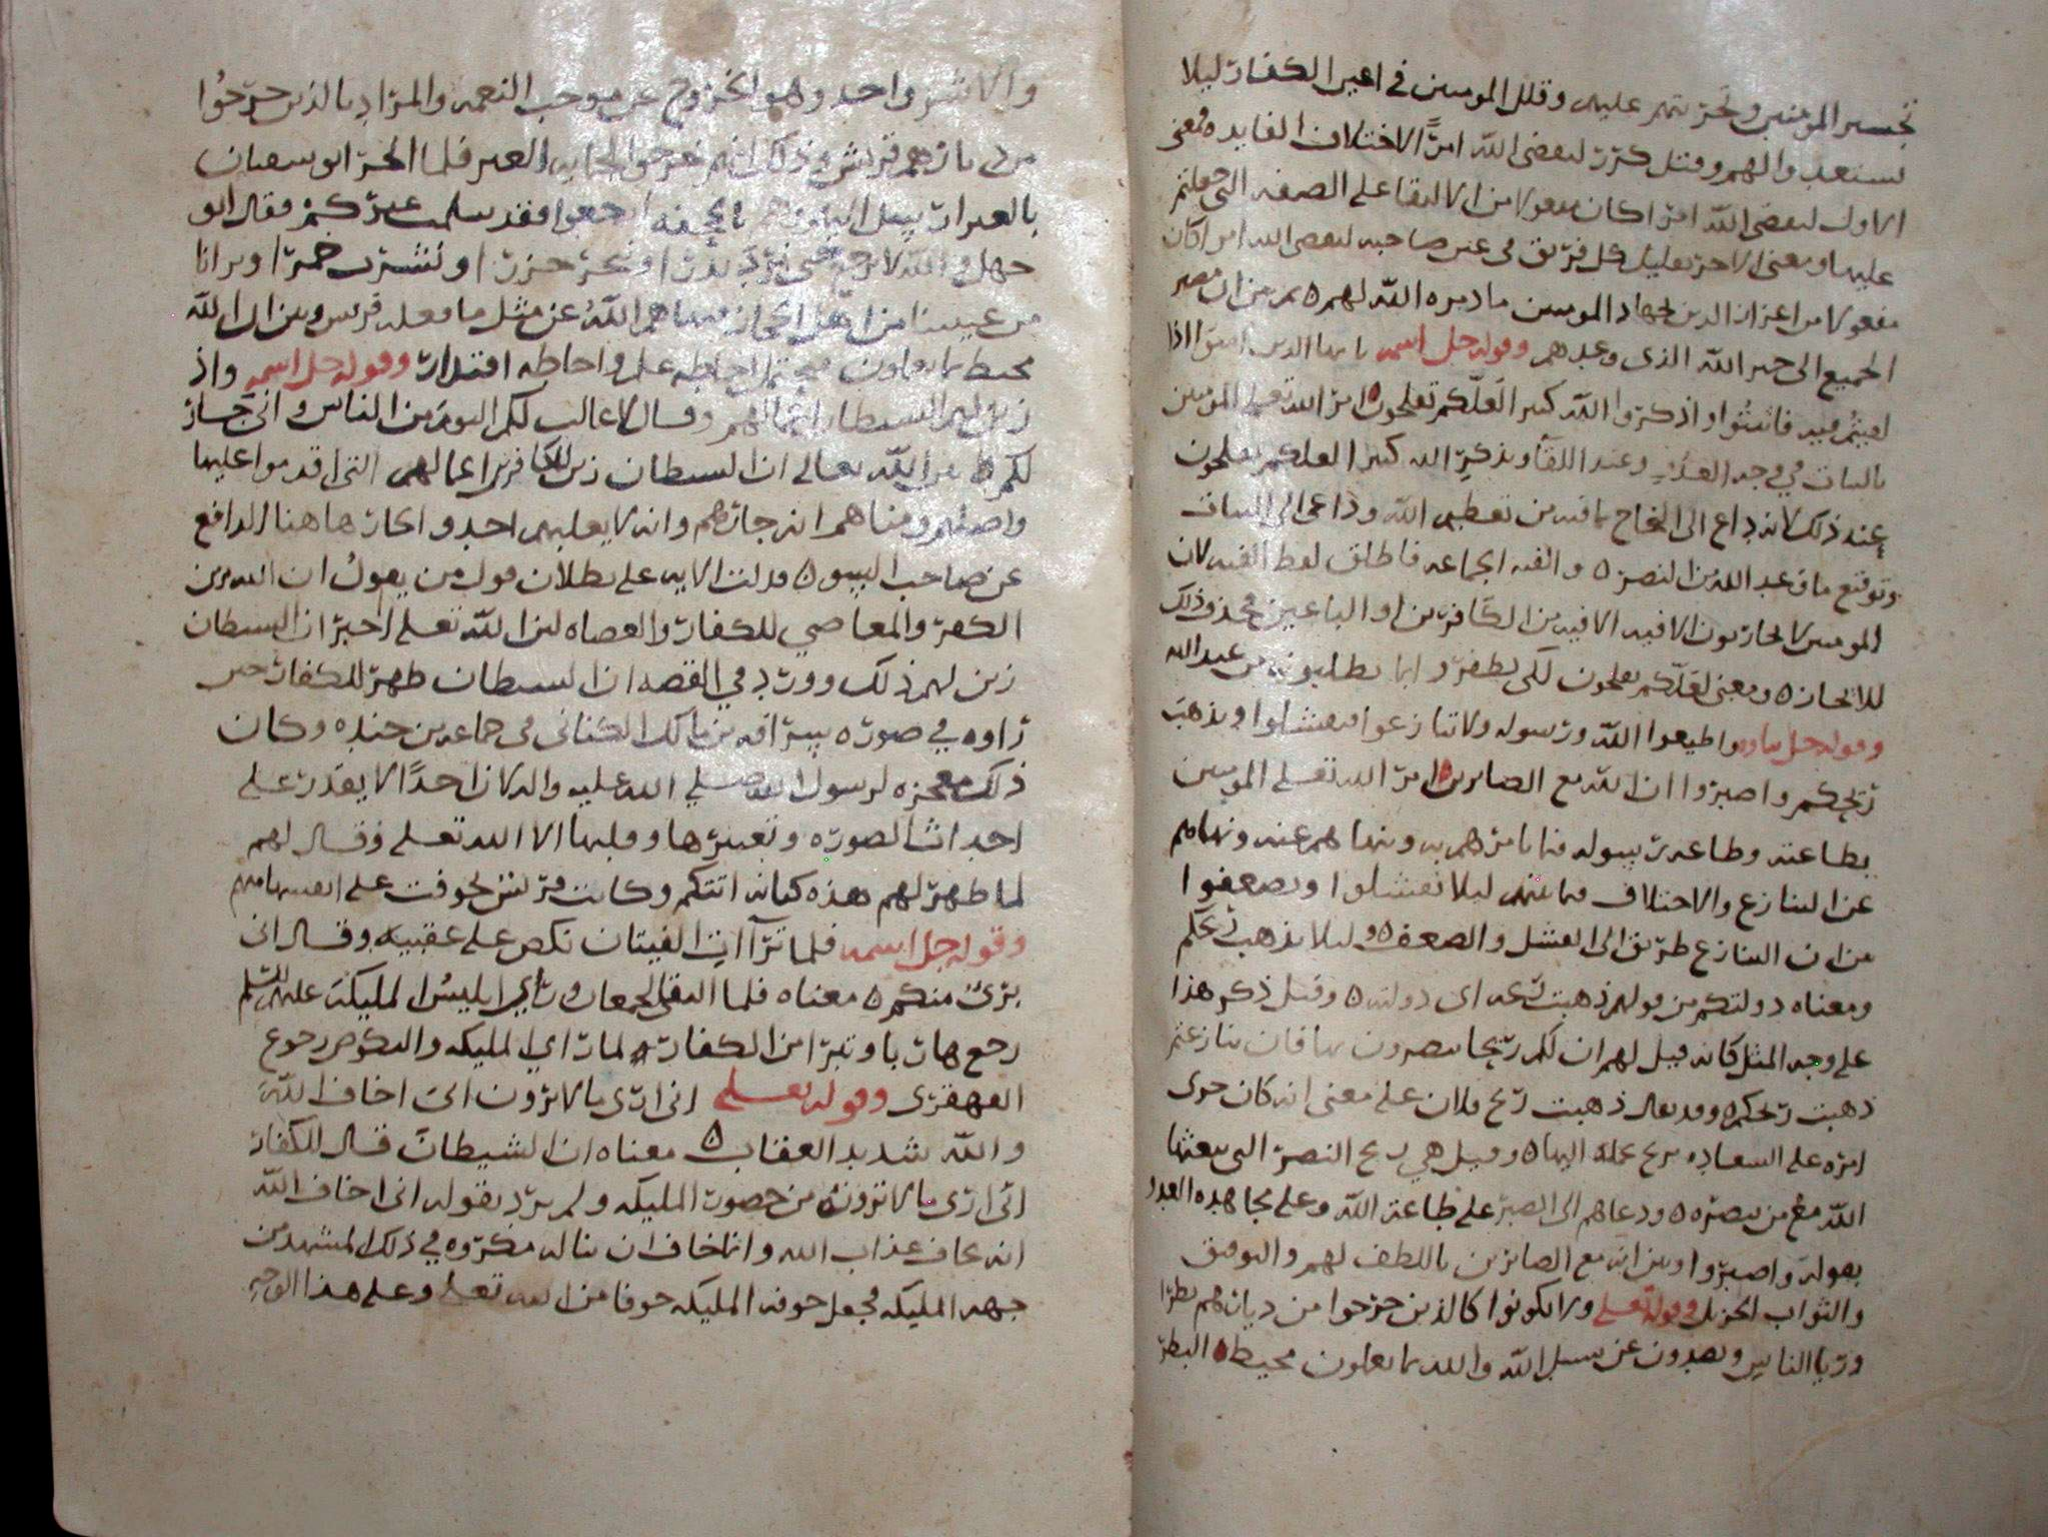 تجسير المومنين وتحريتهم عليهم وقلل المومنين في اعين الكفار ليلا
يستعدوا لهم وقيل كرر ليقضي الله امرًا لاختلاف الفايده فمعنى
الاول ليقضي الله امرا كان مفعولا من الالتقا على الصفه التي حعلتم
عليها ومعنى الاخر تقليل كل فريق في عين صاحبه ليقضي الله امرا كان
مفعولا من اعزاز الدين بجهاد المومنين ما دبره الله لهم ٥ ثم بين ان مصير
الجميع الى خبر الله الذي وعدهم وقوله جل اسمه يا ايها الذين امنوا اذا
لقيتم فيه فاثبتوا واذكروا الله كثيرا لعلكم تفلحون ٥ امر الله تعلى المومنين
بالثبات في وجه العدو عند اللقآ وبذكر الله كثيرا لعلكم تفلحون
عند ذلك لانه داع الى النجاح بما فيه من تعظيم الله وداعى الى الثبات
وتوقع ما وعد الله من النصر ٥ والفيه الجماعه فاطلق لفظ الفيه لان
المومنين لا يحاربون الا فيه الا فيه من الكافرين او الباغين فحذف ذلك
للايجاز ٥ ومعنى لعلكم تفلحون لكى تظفروا بما تطلبونه من عند الله
وقوله جل ثناوه واطيعوا الله ورسوله ولا تنازعوا فتفشلوا وتذهب
ريحكم واصبروا ان الله مع الصابرين ٥ امر الله تعلى المومنين
بطاعته وطاعة رسوله فيما يامرهم به وينهاهم عنه ونهاهم
عن التنازع والاختلاف فيما بينهم ليلا تفشلوا وتضعفوا
من ان التنازع طريق الى الفشل والضعف ٥ وليلا تذهب ريحكم
ومعناه دولتكم من قولهم ذهبت ريحه اى دولته ٥ وقيل ذكر هذا
على وجه المثل كانه قيل لهم ان لكم ريحا تنصرون بها فان تنازعتم
ذهبت ريحكم ٥ وقد يقال ذهبت ريح فلان على معنى انه كان جرى
امره على السعاده بريح تحمله اليها ٥ وقيل هي ريح النصر التي يبعثها
الله مع من ينصره ٥ ودعاهم الى الصبر على طاعة الله وعلى مجاهده العدو
بقوله واصبروا وبين انه مع الصابرين باللطف لهم والتوفيق
والثواب الجزيل وقوله تعلى ولا تكونوا كالذين خرجوا من ديارهم بطرا
وريا الناس ويصدون عن سبيل الله والله بما يعملون محيط ٥ البطر
والاشر واحد وهو الخروج عن موجب النعمه والمراد بالذين خرجوا
من ديارهم قريش وذلك انهم خرجوا لحمايه العير فلما نجز ابو سفيان
بالعير ارسل اليهم وهم بالجحفه ارجعوا فقد سلمت عيركم فقال ابو
جهل والله لا نرجع حتى نرد بدرا وننحر جزرا ونشرب خمرا ويرانا
من غشينا من اهل الحجاز فنهاهم الله عن مثل ما فعله قريش وبين ان الله
محيط بما يعملون فيحتمل احاطه علم واحاطه اقتدار وقوله جل اسمه واذ
زين لهم الشيطان اعمالهم وقال لا غالب لكم اليوم من الناس وانى جار
لكم ٥ بين الله تعالى ان الشيطان زين للكافرين اعمالهم التى اقدموا عليها
واصلهم ومناهم انه جارهم وانه لا يغلبهم احد والجار هاهنا الدافع
عن صاحبه السو ٥ فدلت الايه على بطلان قول من يقول ان الله زين
الكفر والمعاصي للكفار والعصاه لان الله تعلى اخبر ان الشيطان
زين لهم ذلك وورد في القصه ان الشيطان ظهر للكفار حتى
راوه في صوره سراقه بن مالك الكناني في جماعه من جنده وكان
ذلك معجزه لرسول الله صلى الله عليه واله لان احدًا لا يقدر على
احداث الصوره وتغييرها وقلبها الا الله تعلى وقال لهم
لما ظهر لهم هذه كنانه اتتكم وكانت قريش تخوفت على انفسها منهم
وقوله جل اسمه فلما ترآات الفيتان نكص على عقبيه وقال انى
برئ منكم ٥ معناه فلما التقى الجمعان وراي ابليس المليكة عليهم السلم
رجع هاربا وتبرا من الكفار لما راي المليكه والنكوص رجوع
القهقرى وقوله تعلى انى ارى ما لا ترون انى اخاف الله
والله شديد العقاب ٥ معناه ان الشيطان قال للكفار
انى ارى ما لا ترونه من حضور المليكه ولم يرد بقوله انى اخاف الله
انه يخاف عذاب الله وانما خاف ان يناله مكروه في ذلك المشهد من
جهه المليكه فجعل خوفه المليكه خوفا من الله تعلى وعلى هذا الوجه